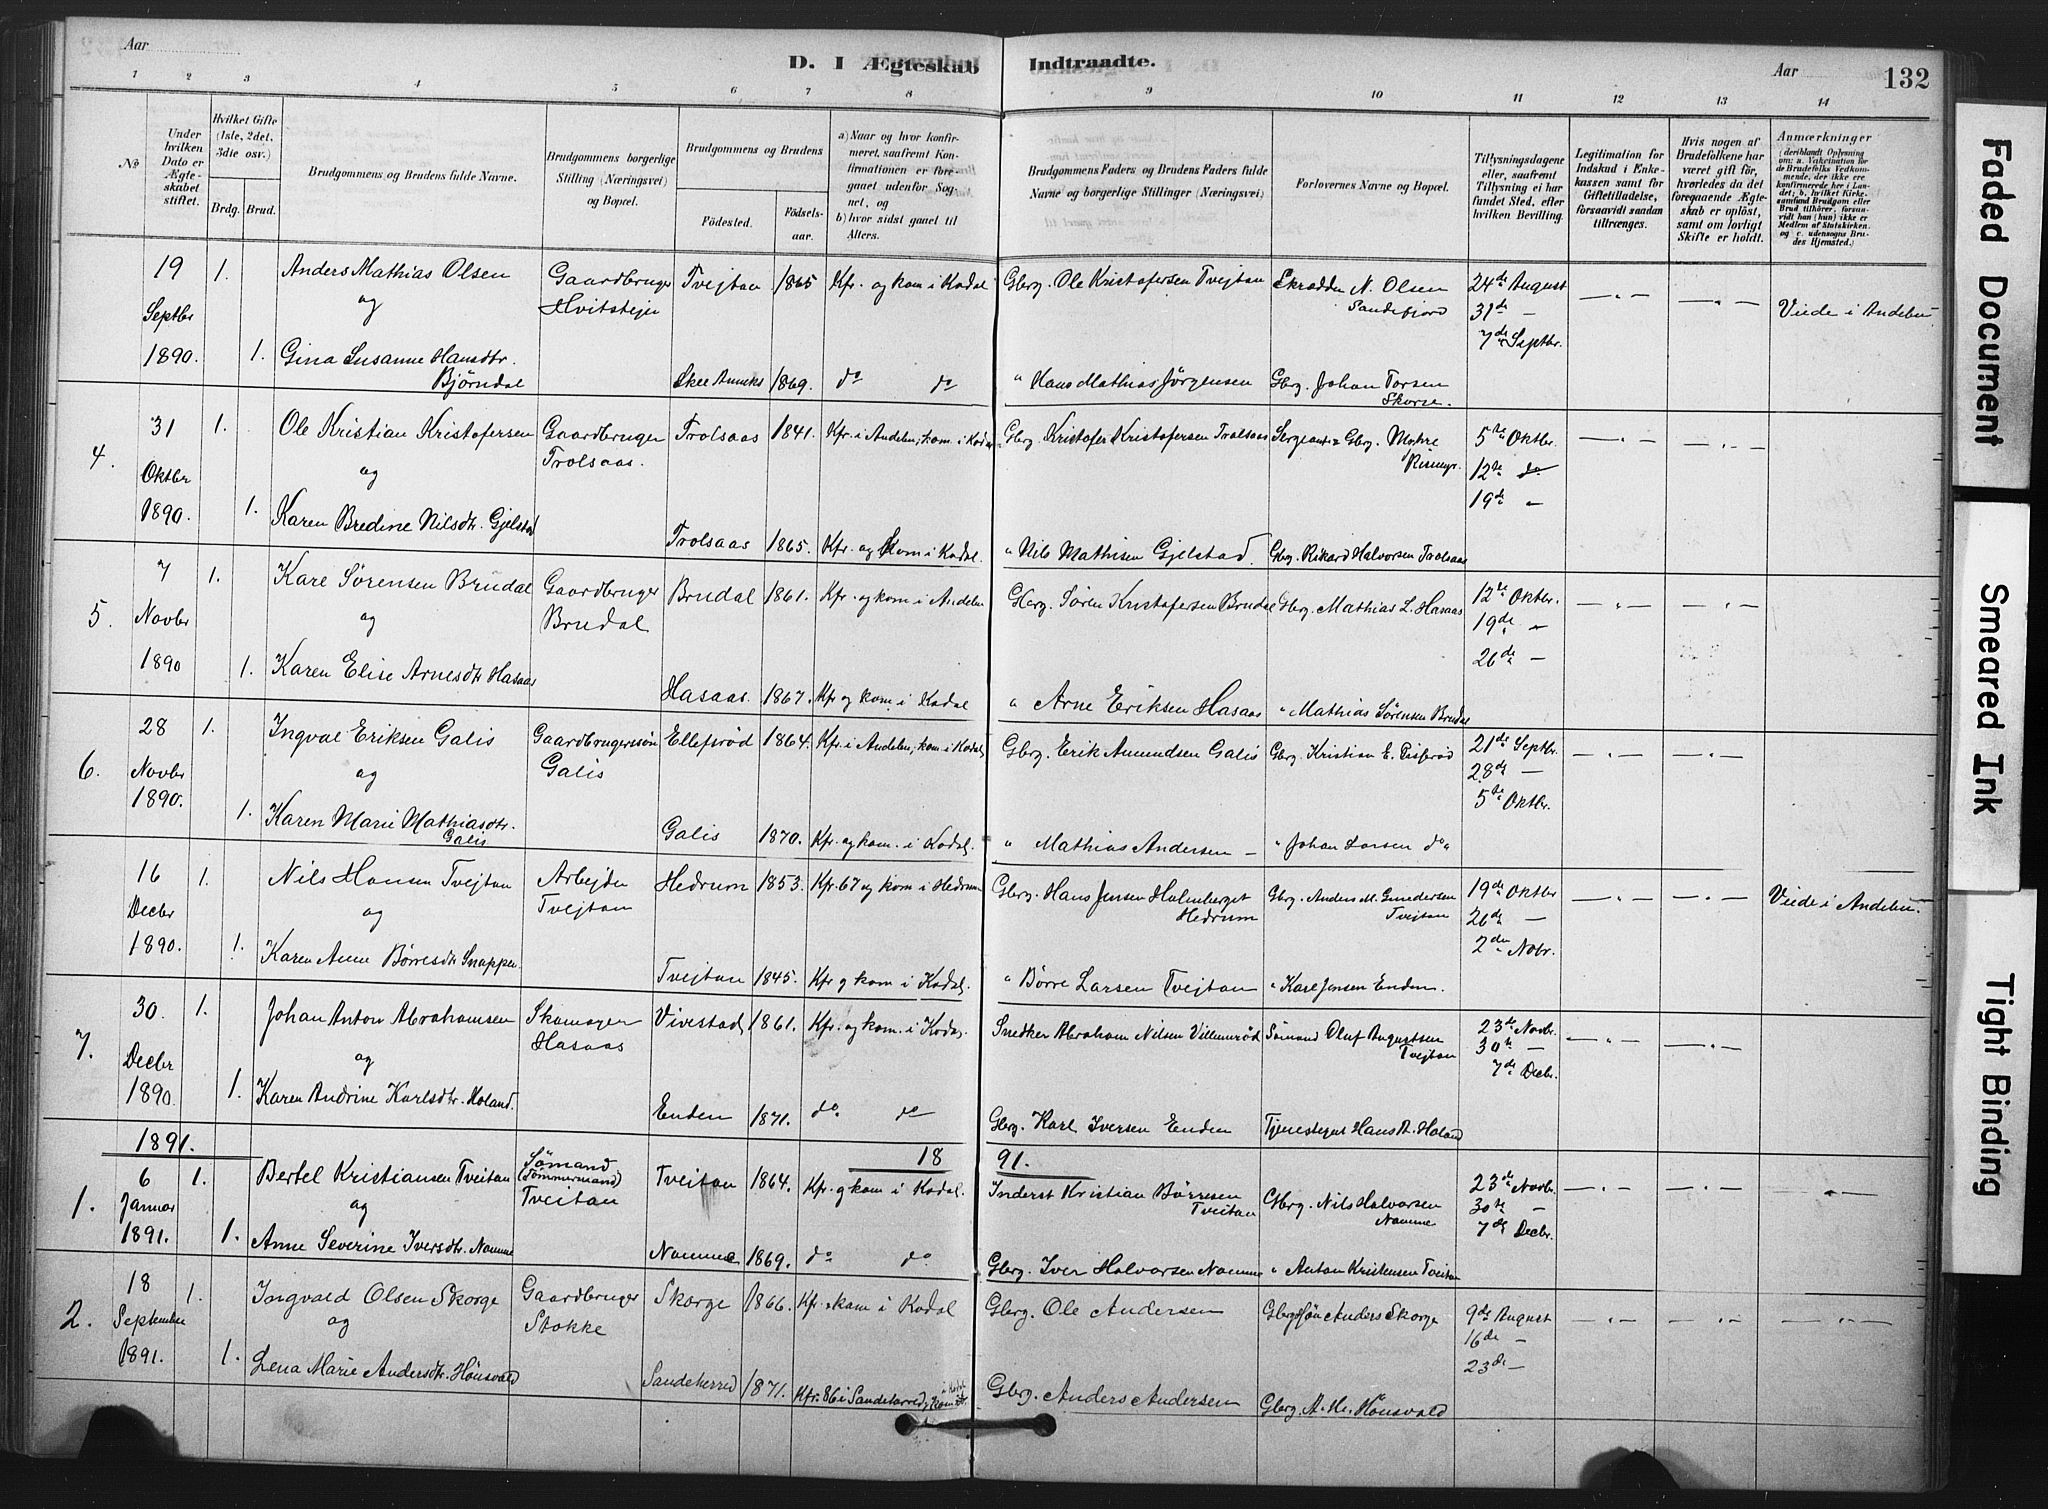 Aar
D. I Ægteskab Indtraadte.
Aar
132
1 2 3 4 5 6 7 8 9 10 11 12 13 14
No
Under hvilken Dato er Ægteskabet stiftet.
Hvilket Gifte (1ste, 2det, 3die osv.)
Brdg. Brud.
Brudgommens og Brudens fulde Navne.
Brudgommens borgerlige Stilling (Næringsvei) og Bopæl.
Brudgommens og Brudens
Födested.
Födselsaar.
a) Naar og hvor konfirmeret, saafremt Konfirmationen er foregaaet udenfor Sognet, og
b) hvor sidst gaaet til Alters.
Brudgommens Faders og Brudens Faders fulde Navne og borgerlige Stillinger (Næringsvei)
Forlovernes Navne og Bopæl.
Tillysningsdagene eller, saafremt Tillysning ei har fundet Sted, efter hvilken Bevilling.
Legitimation for Indskud i Enkekassen samt for Giftetilladelse, forsaavidt saadan tiltrænges.
Hvis nogen af Brudefolkene har været gift før, hvorledes da det foregaaende Ægteskab er oplöst, samt om lovligt Skifte er holdt.
Anmærkninger
(deriblandt Oplysning om: a. Vakcination for de Brudefolks Vedkommende, der ikke ere konfirmerede her i Landet; b. hvilket Kirkesamfund Brudgom eller Brud tilhører, forsaavidt han (hun) ikke er Medlem af Statskirken og c. udensogns Brudes Hjemsted.)
19 1. Anders Mathias Olsen Gaardbruger Tvejtan 1865 Kfr. og kom i Kodal Gbrg. Ole Kristofersen Tvejtan Skrædder N. Olsen 24de August
Septbr og Hvitstejn Sandefjord 31de — Viede i Andebu
1890. 1. Gina Susanne Hansdtr. 7de Septbr.
Bjørndal Skee Anneks 1869. do do " Hans Mathias Jørgensen Gbrg. Johan Torsen
Skorge.
31 1. Ole Kristian Kristofersen Gaardbruger Trolsaas 1841. Kfr. i Andebu, kom. i Kodal Gbrg. Kristofer Kristofersen Trolsaas Sergeant & Gbrg. 5te Oktbr.
4. Oktbr og Trolsaas. 12te do
1890. 1. Karen Bredine Nilsdtr. Gjelstad 19de "
Trolsaas 1865. Kfr. og kom i Kodal. " Nils Mathisen Gjelstad. Gbrg. Rikard Halvorsen Trolsaas
7 1. Kare Sørensen Brudal Gaardbruger Brudal 1861. Kfr. og kom i Andebu Gbrg. Søren Kristofersen Brudal Gbrg. Mathias L. Hasaas 12te Oktbr.
5. Novbr og Brudal 19de "
1890 1. Karen Elise Arnesdtr Hasaas 26de —
Hasaas 1867. Kfr og kom i Kodal " Arne Eriksen Hasaas " Mathias Sørensen Brudal
28 1. Ingval Eriksen Galis Gaardbrugersøn Ellefsrød 1864. Kfr. i Andebu, kom. i Kodal Gbrg. Erik Amundsen Galis Gbrg. Kristian E. 21de Septbr.
6. Novbr og Galis 28de —
1890. 1. Karen Marie Mathiasdtr. 5te Oktbr.
Galis Galis 1870. Kfr. og kom. i Kodal. " Mathias Andersen — " Johan Larsen do
16 1. Nils Hansen Tvejtan Arbejder Hedrum 1853. Kfr. 67 og kom i Hedrum Gbrg. Hans Jensen Holmberget Gbrg. Anders M. Gundersen 19de Oktbr Viede i Andebu.
Decbr og Tvejtan Hedrum Tvejtan 26de —
1890. 1. Karen Anne Børresdtr Snappen 2den Nobr.
Tvejtan 1845. Kfr og kom i Kodal. " Børre Larsen Tvejtan " Karl Jensen Enden.
30 1. Johan Anton Abrahamsen Skomager Vivestad 1861. Kfr. og kom. i Kodal Snedker Abraham Nilsen Villemsrød Sømand Oluf Augustsen 23de Novbr.
7. Decbr og Hasaas Tvejtan 30te —
1890. 1. Karen Andrine Karlsdtr. Holand. 7de Decbr.
Enden 1871. do do Gbrg. Karl Iversen Enden Tjenestegut Hans A. Holand
1891. 18 91.
6 1. Bertel Kristiansen Tveitan Sømand Tveitan 1864. Kfr. og kom i Kodal. Inderst Kristian Børresen Gbrg. Nils Halvorsen 23de Novbr.
1. Januar og (Tømmermand) Tveitan Tveitan Namme 30te "
1891. 1. Anne Severine Iversdtr. Namme 7de Decbr.
Namme 1869. do do Gbrg. Iver Halvorsen Namme " Anton Kristensen Tveitan
18 1. Ingvald Olsen Skorge Gaardbruger Skorge 1866. Kfr. & kom i Kodal Gbrg. Ole Andersen Gbrgssøn Anders Skorge 9de August
2. September og Stokke 16de —
1891. 1. Lena Marie Andersdtr. Hønsvald 23de —
Sandeherred 1871. Kfr. 86 i Sandeherred, Kom. Gbrg. Anders Andersen Gbrg. A. M. Hønsvald
Faded Document
Smeared Ink
Tight Binding